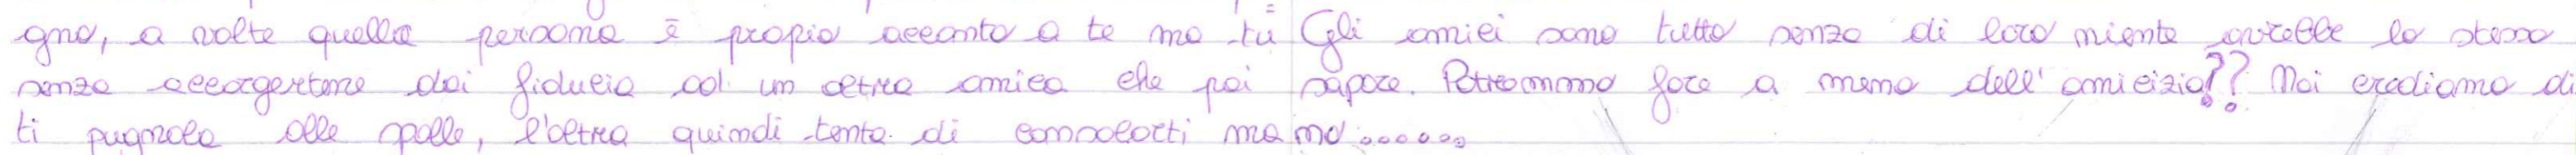 gno, a volte quella persona è propio accanto a te ma tu
senza accorgertene dai fiducia ad un altra amica che poi
ti pugnala alle spalle, l'altra quindi tenta di consolarti ma
Gli amici sono tutto senza di loro niente avrebbe lo stesso
sapore. Potremmo fare a meno dell'amicizia?? Noi crediamo di
no......